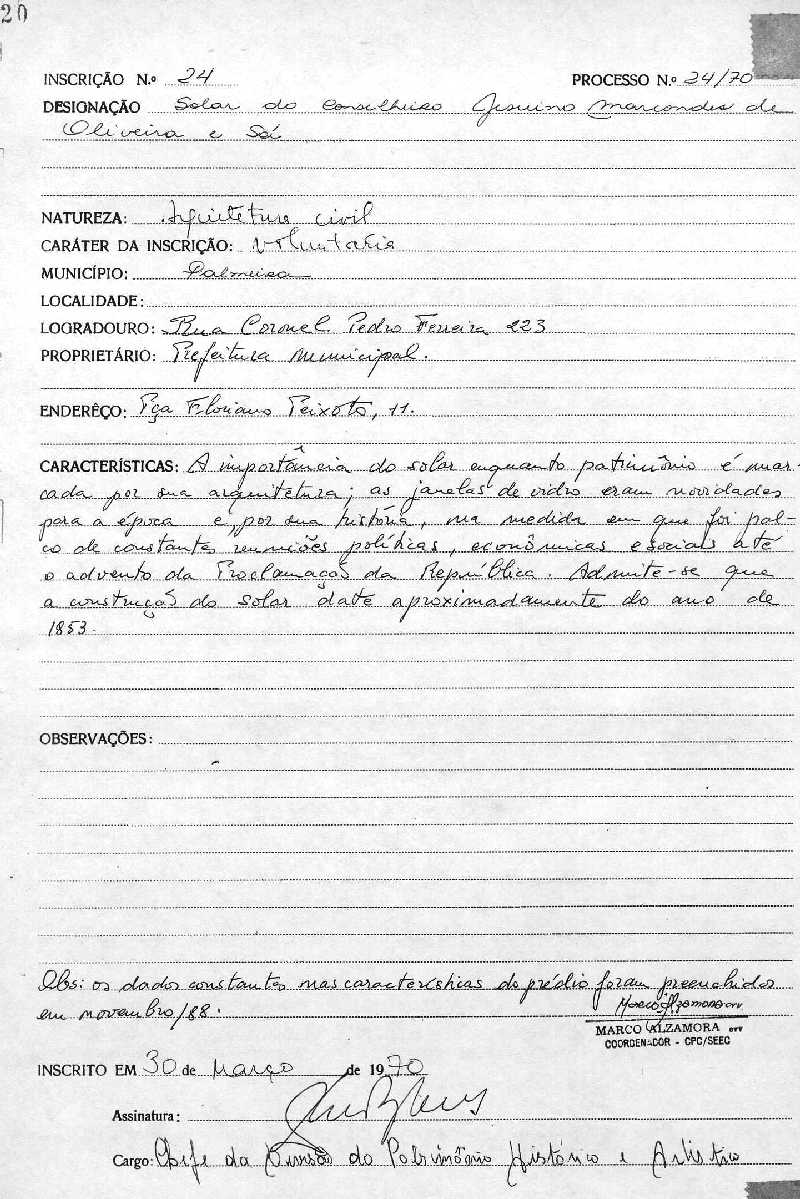 20
INSCRIÇÃO N.º 24 PROCESSO N.º 24/70
DESIGNAÇÃO Solar do Conselheiro Jesuino Marcondes de
Oliveira e Sá
NATUREZA: Arquitetura civil
CARÁTER DA INSCRIÇÃO: voluntaria
MUNICÍPIO: Palmeira
LOCALIDADE:
LOGRADOURO: Rua Coronel Pedro Ferreira 223
PROPRIETÁRIO: Prefeitura Municipal.
ENDERÊÇO: Pça Floriano Peixoto, 11.
CARACTERÍSTICAS: A importância do solar enquanto patrimônio é mar-
cada por sua arquitetura; as janelas de vidro eram novidades
para a época e, por sua história, na medida em que foi pal-
co de constantes reuniões políticas, econômicas e sociais até
o advento da Proclamação da República. Admite-se que
a construção do solar date aproximadamente do ano de
1853.
OBSERVAÇÕES:
Obs: os dados constantes nas características do prédio foram preenchidos
em novembro/88.
MARCO ALZAMORA
COORDENADOR - CPC/SEEC
INSCRITO EM 30 de Março de 1970
Assinatura:
Cargo: Chefe da Divisão do Patrimônio Histórico e Artístico